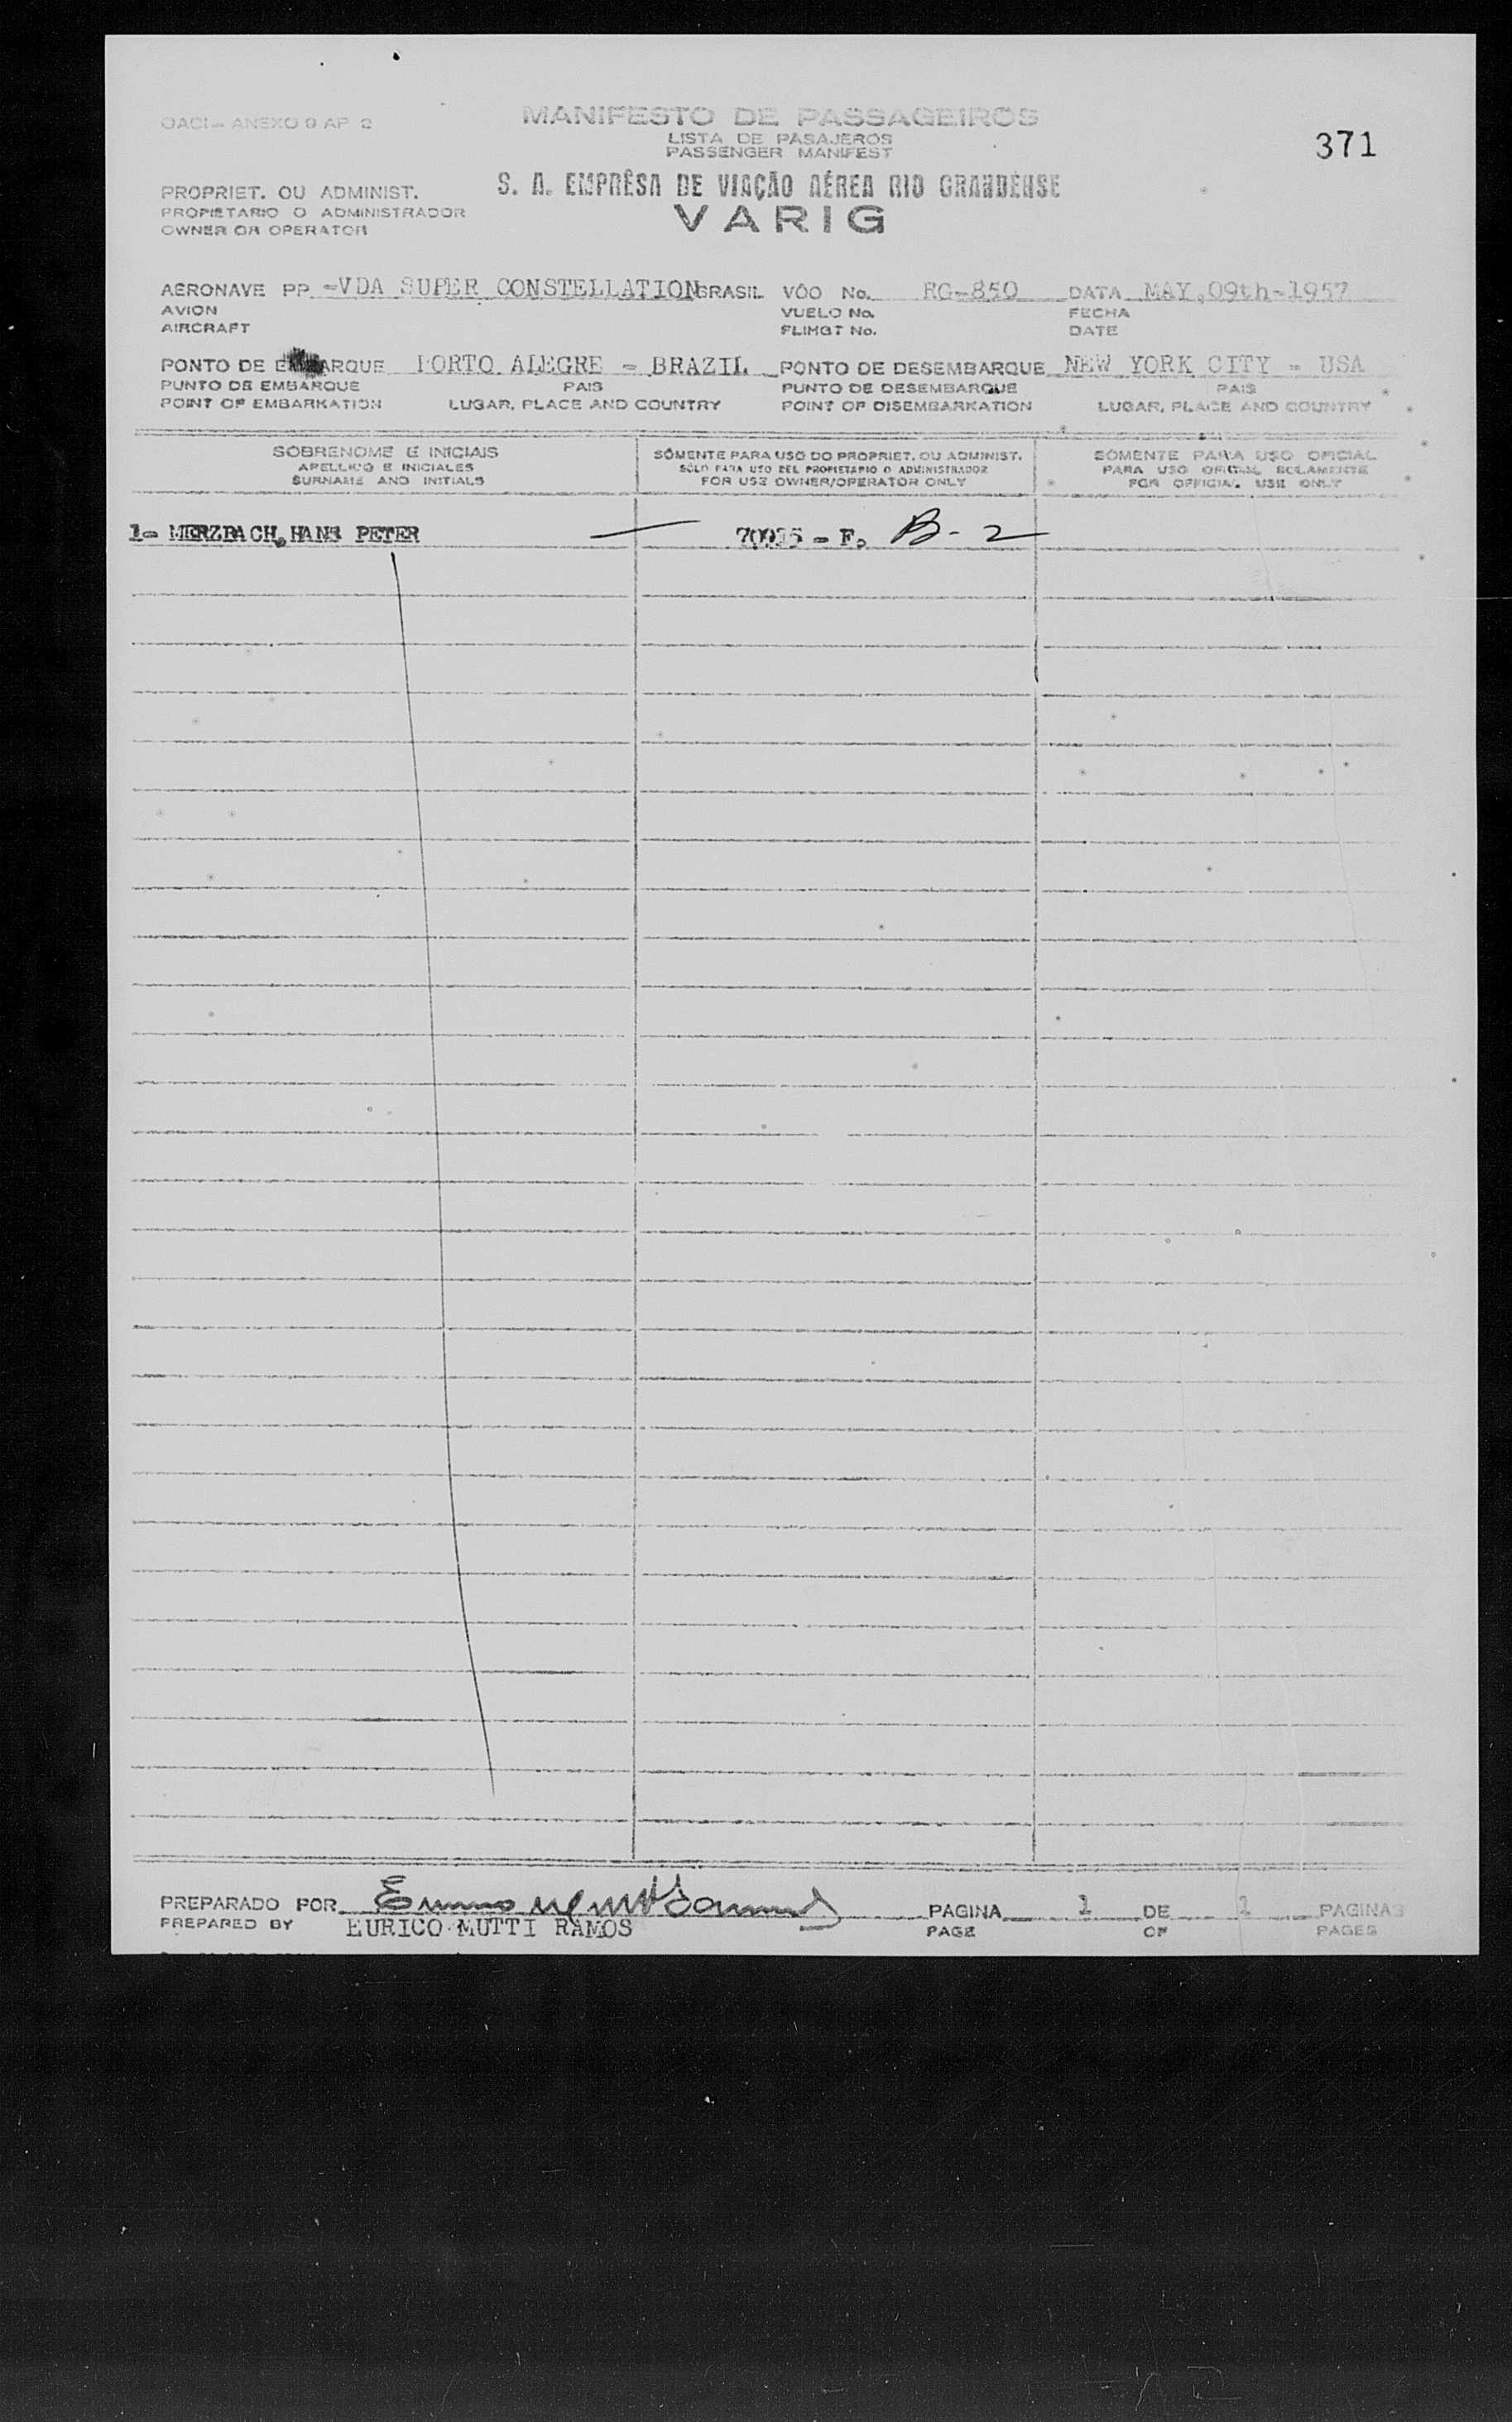 OACI - ANEXO 9 AP 2
MANIFESTO DE PASSAGEIROS
LISTA DE PASAJEROS
PASSENGER MANIFEST
371
PROPRIET. OU ADMINIST.
PROPIETARIO O ADMINISTRADOR
OWNER OR OPERATOR
S. A. EMPRÊSA DE VIAÇÃO AÉREA RIO GRANDENSE
VARIG
AERONAVE PP -VDA SUPER CONSTELLATION BRASIL VÔO No. RG-850 DATA MAY,09th-1957
AVION VUELO No. FECHA
AIRCRAFT FLIMGT No. DATE
PONTO DE EMBARQUE PORTO ALEGRE - BRAZIL PONTO DE DESEMBARQUE NEW YORK CITY - USA
PUNTO DE EMBARQUE PAIS PUNTO DE DESEMBARQUE PAIS
POINT OF EMBARKATION LUGAR, PLACE AND COUNTRY POINT OF DISEMBARKATION LUGAR, PLACE AND COUNTRY
SOBRENOME E INICIAIS SÔMENTE PARA USO DO PROPRIET. OU ADMINIST. SOMENTE PARA USO OFICIAL
APELLIDO E INICIALES SÓLO PARA USO DEL PROPIETARIO O ADMINISTRADOR PARA USO OFICIAL SOLAMENTE
SURNAME AND INITIALS FOR USE OWNER/OPERATOR ONLY FOR OFFICIAL USE ONLY
1- MERZBACH, HANS PETER - F. B-2
PREPARADO POR PAGINA 1 DE 1 PAGINAS
PREPARED BY EURICO MUTTI RAMOS PAGE OF PAGES